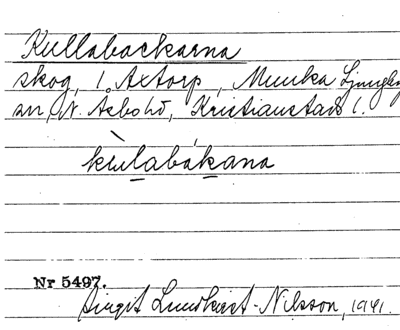 Kullabackarna
skog, i Axtorp, Munka Ljungby
sn, N. Åsbo hd, Kristianstads l.
kulabákana
Nr 5497.
Birgit Lundkvist-Nilsson, 1941.